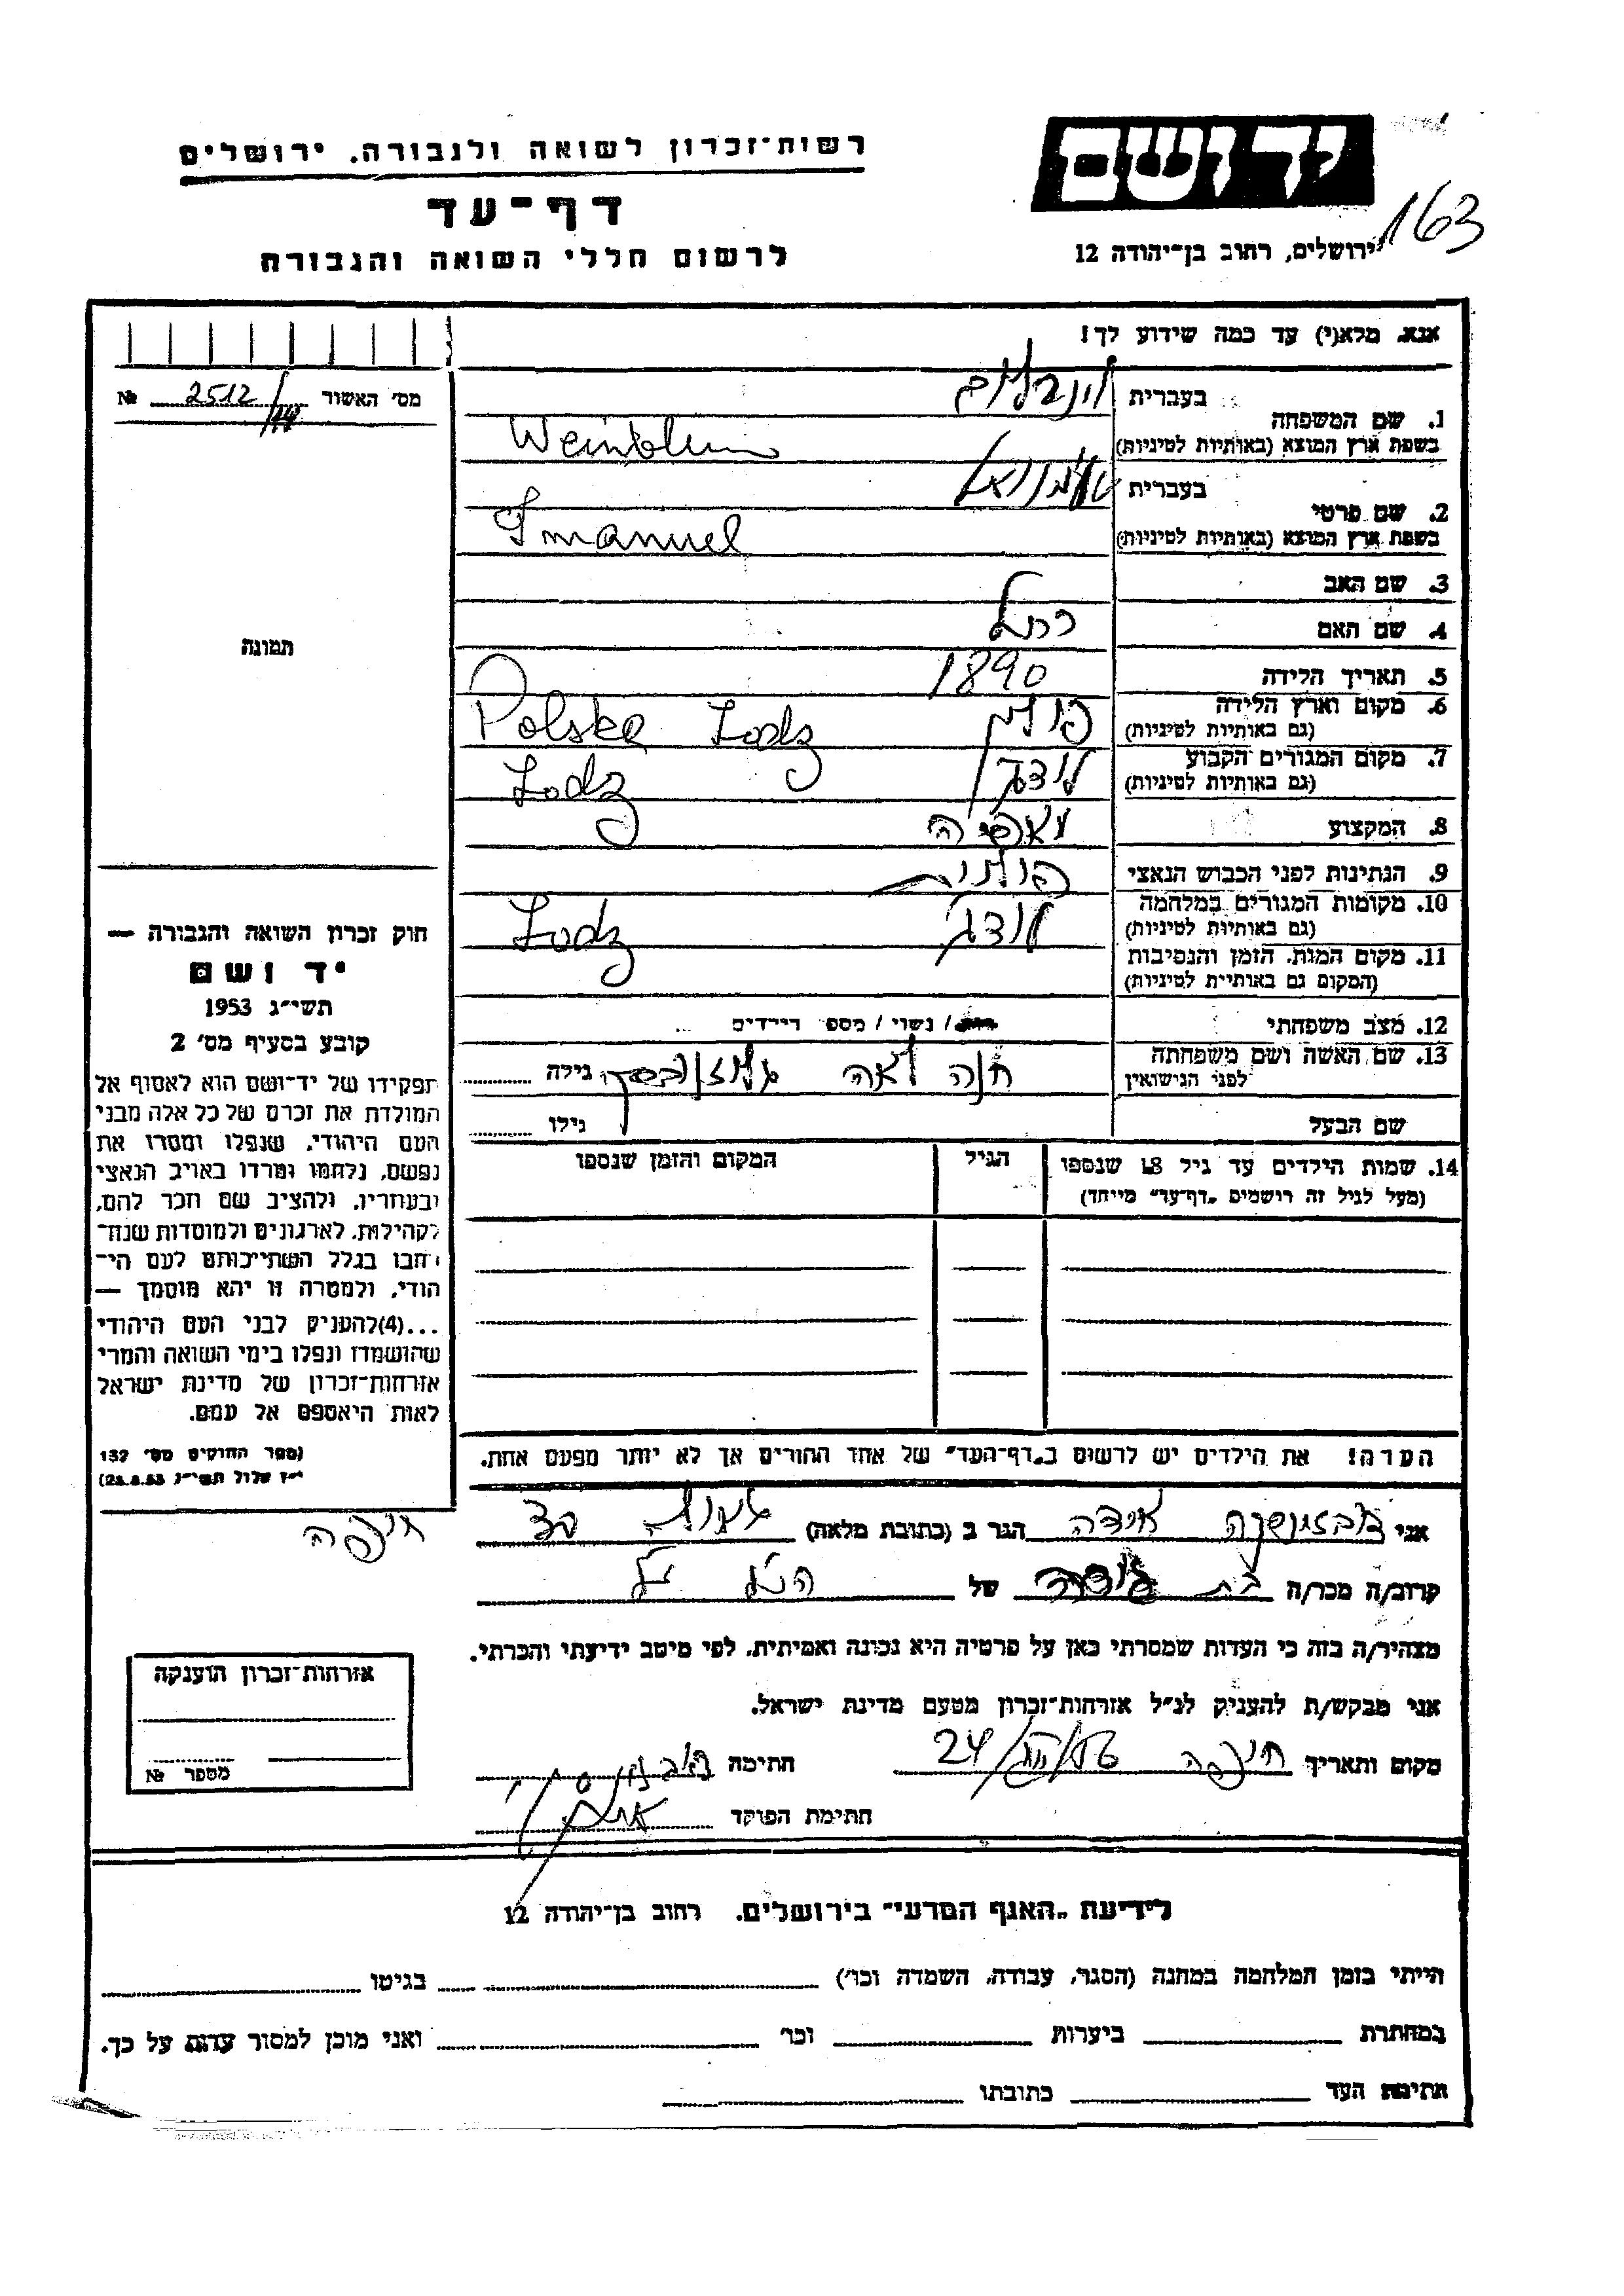 רשות־זכרון לשואה ולגבורה. ירושלים
יד ושם
דף־עד
163
לרשום חללי השואה והגבורה
ירושלים, רחוב בן־יהודה 12
אנא, מלא(י) עד כמה שידוע לך!
מס׳ האשור 2512/ №
1. שם המשפחה
בעברית וינבלום
בשפת ארץ המוצא (באותיות לטיניות) Weinblum
2. שם פרטי
בעברית
בשפת ארץ המוצא (באותיות לטיניות) Imanuel
תמונה
3. שם האב
4. שם האם רחל
5. תאריך הלידה 1890
6. מקום וארץ הלידה פולין Polska Lodz
(גם באותיות לטיניות)
7. מקום המגורים הקבוע לודג׳ Lodz
(גם באותיות לטיניות)
8. המקצוע
9. הנתינות לפני הכבוש הנאצי פולנית
10. מקומות המגורים במלחמה לודג׳ Lodz
(גם באותיות לטיניות)
11. מקום המות, הזמן והנסיבות
(המקום גם באותיות לטיניות)
12. מצב משפחתי
רווק / נשוי / מספר הילדים
13. שם האשה ושם משפחתה חנה לאה גילה
לפני הנישואין
שם הבעל גילו
14. שמות הילדים עד גיל 18 שנספו הגיל המקום והזמן שנספו
(מעל לגיל זה רושמים „דף־עד״ מיוחד)
חוק זכרון השואה והגבורה —
יד ושם
תשי״ג 1953
קובע בסעיף מס׳ 2
תפקידו של יד־ושם הוא לאסוף אל
המולדת את זכרם של כל אלה מבני
העם היהודי, שנפלו ומסרו את
נפשם, נלחמו ומרדו באויב הנאצי
ובעוזריו, ולהציב שם וזכר להם,
לקהילות, לארגונים ולמוסדות שנח־
רבו בגלל השתייכותם לעם הי־
הודי, ולמטרה זו יהא מוסמך —
...(4) להעניק לבני העם היהודי
שהושמדו ונפלו בימי השואה והמרי
אזרחות־זכרון של מדינת ישראל
לאות היאספם אל עמם.
(ספר החוקים מס׳ 132
י״ז אלול תשי״ג 28.8.53)
הערה! את הילדים יש לרשום ב„דף־העד״ של אחד ההורים אך לא יותר מפעם אחת.
אני אידה הגר ב (כתובת מלאה) חיפה
קרוב/ה מכר/ה בת דודה של הנ״ל
מצהיר/ה בזה כי העדות שמסרתי כאן על פרטיה היא נכונה ואמיתית, לפי מיטב ידיעתי והכרתי.
אני מבקש/ת להעניק לנ״ל אזרחות־זכרון מטעם מדינת ישראל.
מקום ותאריך חיפה 24/ חתימה
חתימת הפוקד
אזרחות־זכרון הוענקה
מספר №
לידיעת „האגף המדעי״ בירושלים, רחוב בן־יהודה 12
הייתי בזמן המלחמה במחנה (הסגר, עבודה, השמדה וכו׳) בגיטו
במחתרת ביערות וכו׳ ואני מוכן למסור עדות על כך.
חתימת העד כתובתו